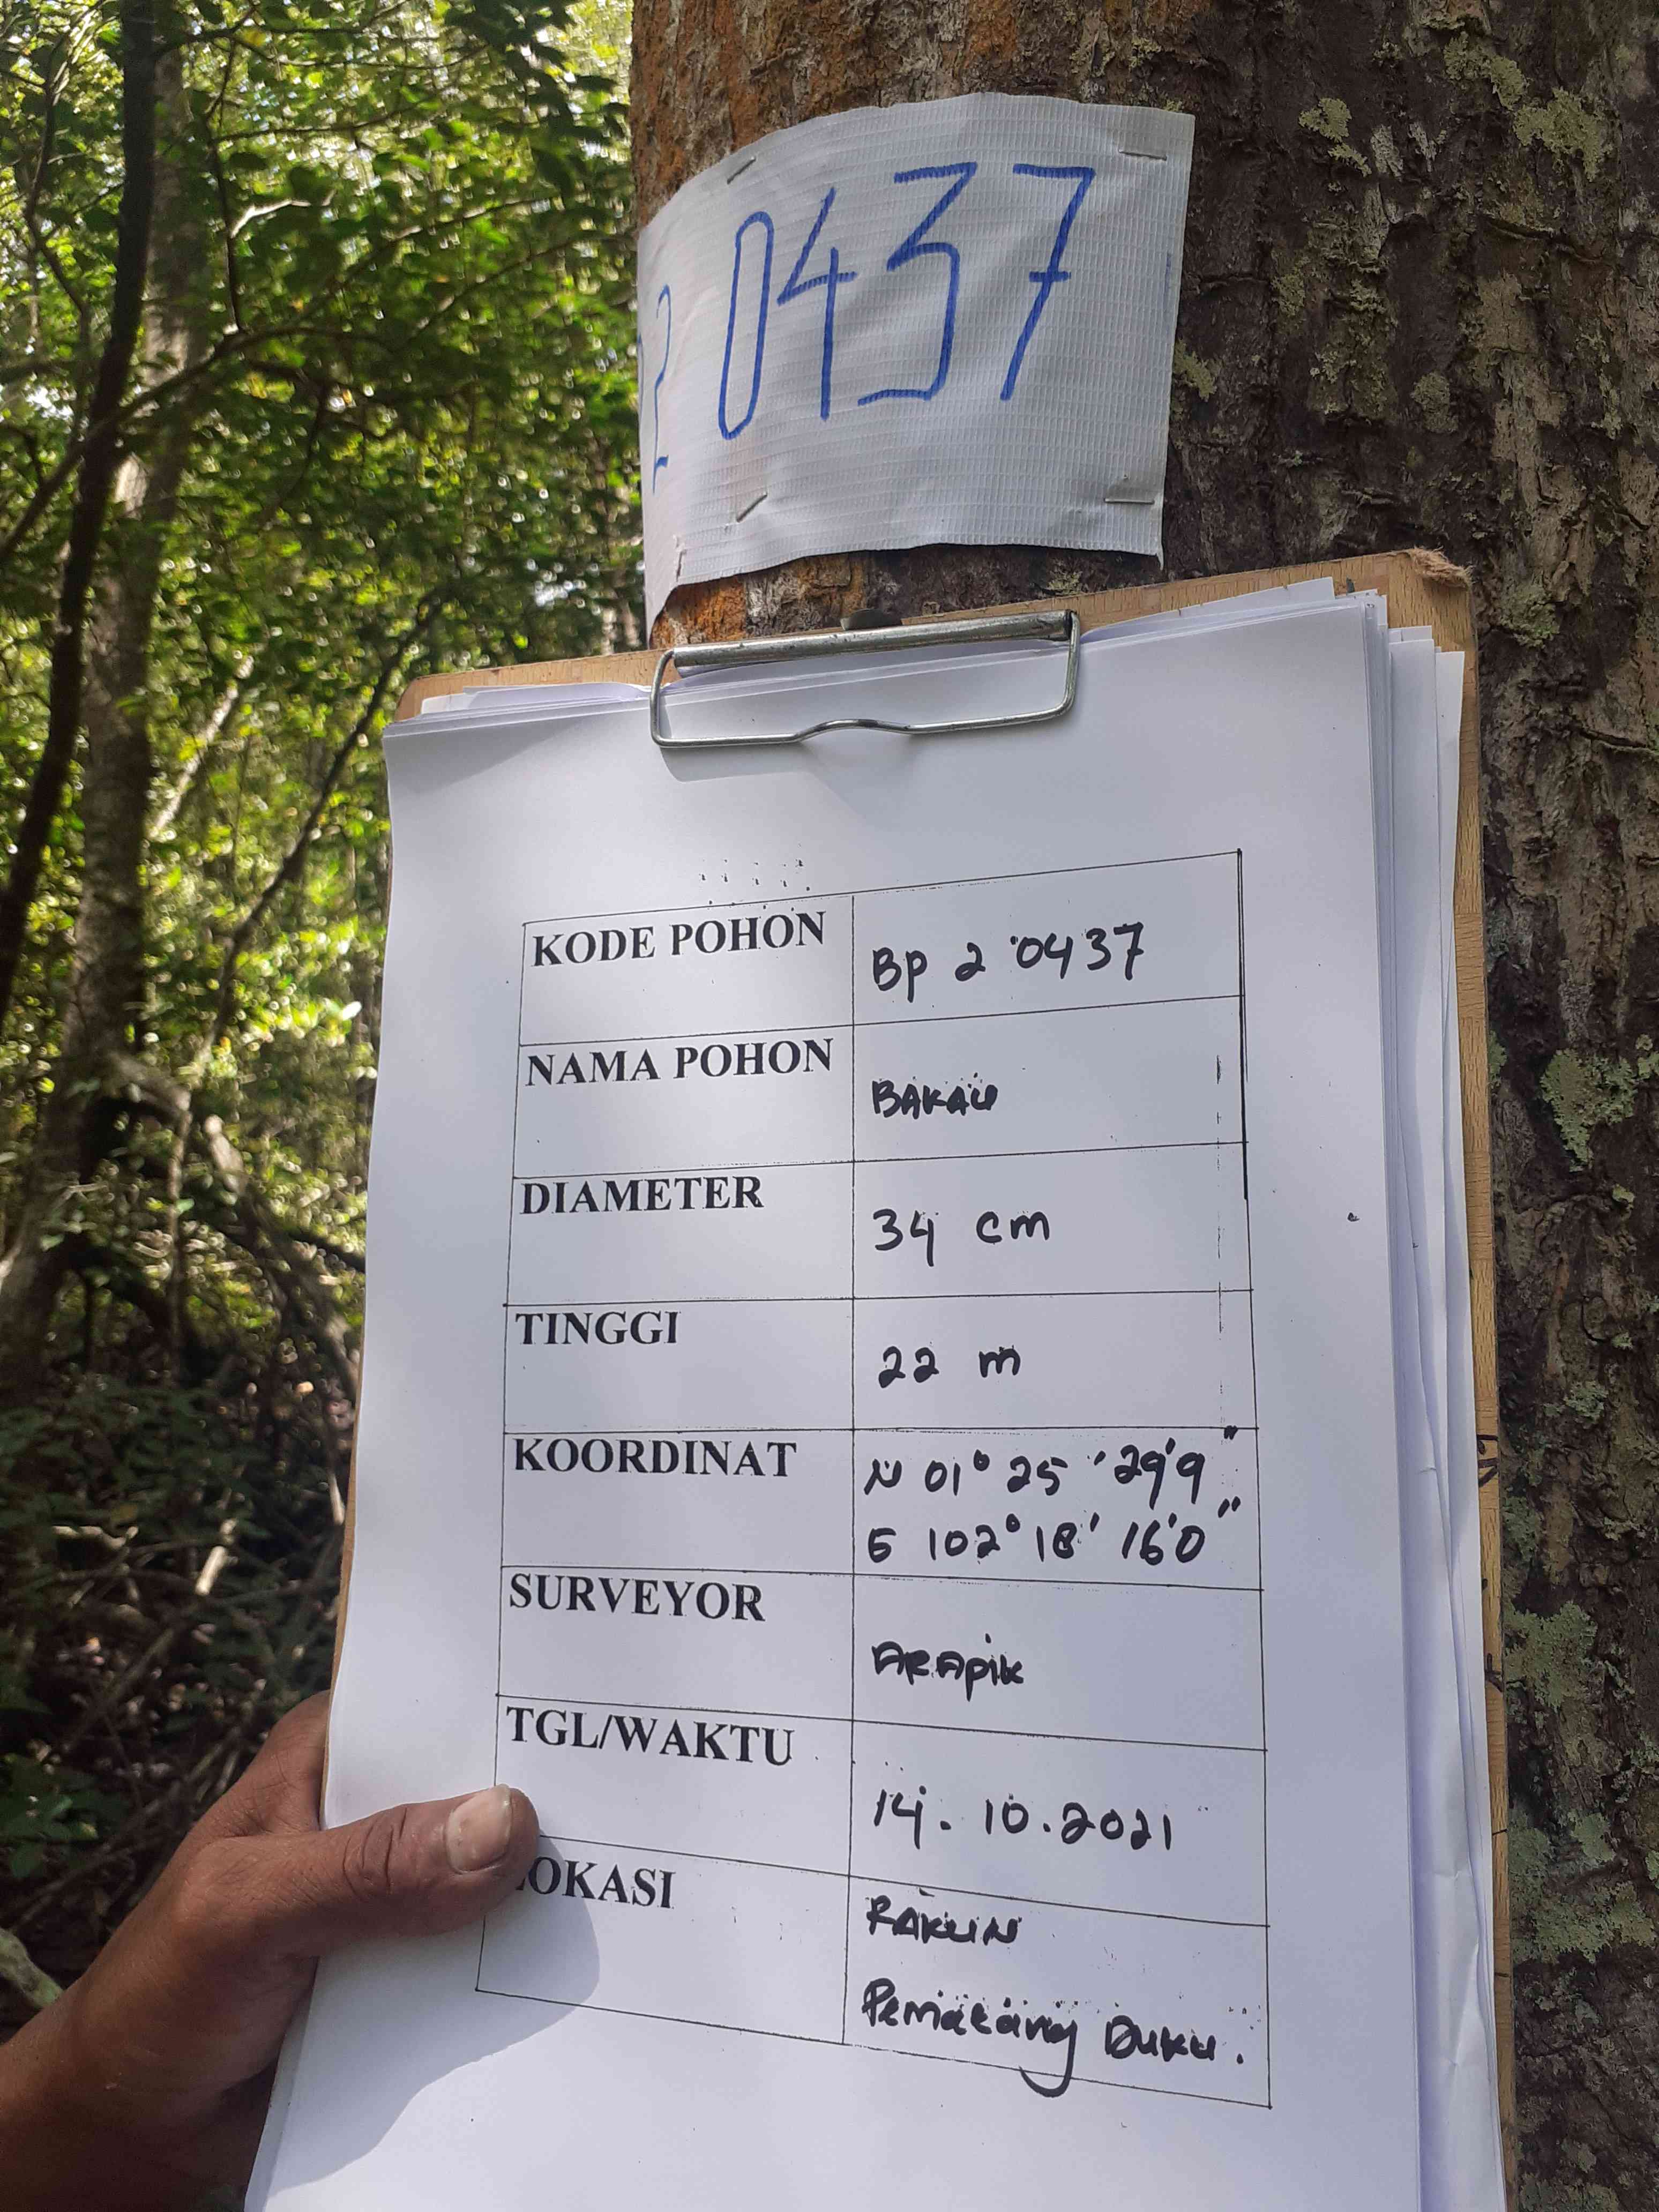 2 0437
KODE POHON
Bp 2 0437
NAMA POHON
BAKAU
DIAMETER
34 cm
TINGGI
22 m
KOORDINAT
N 01° 25 ' 29'9 "
E 102° 18' 16'0 "
SURVEYOR
ARApik
TGL/WAKTU
14. 10. 2021
OKASI
RAKUN
Pematang Duku.